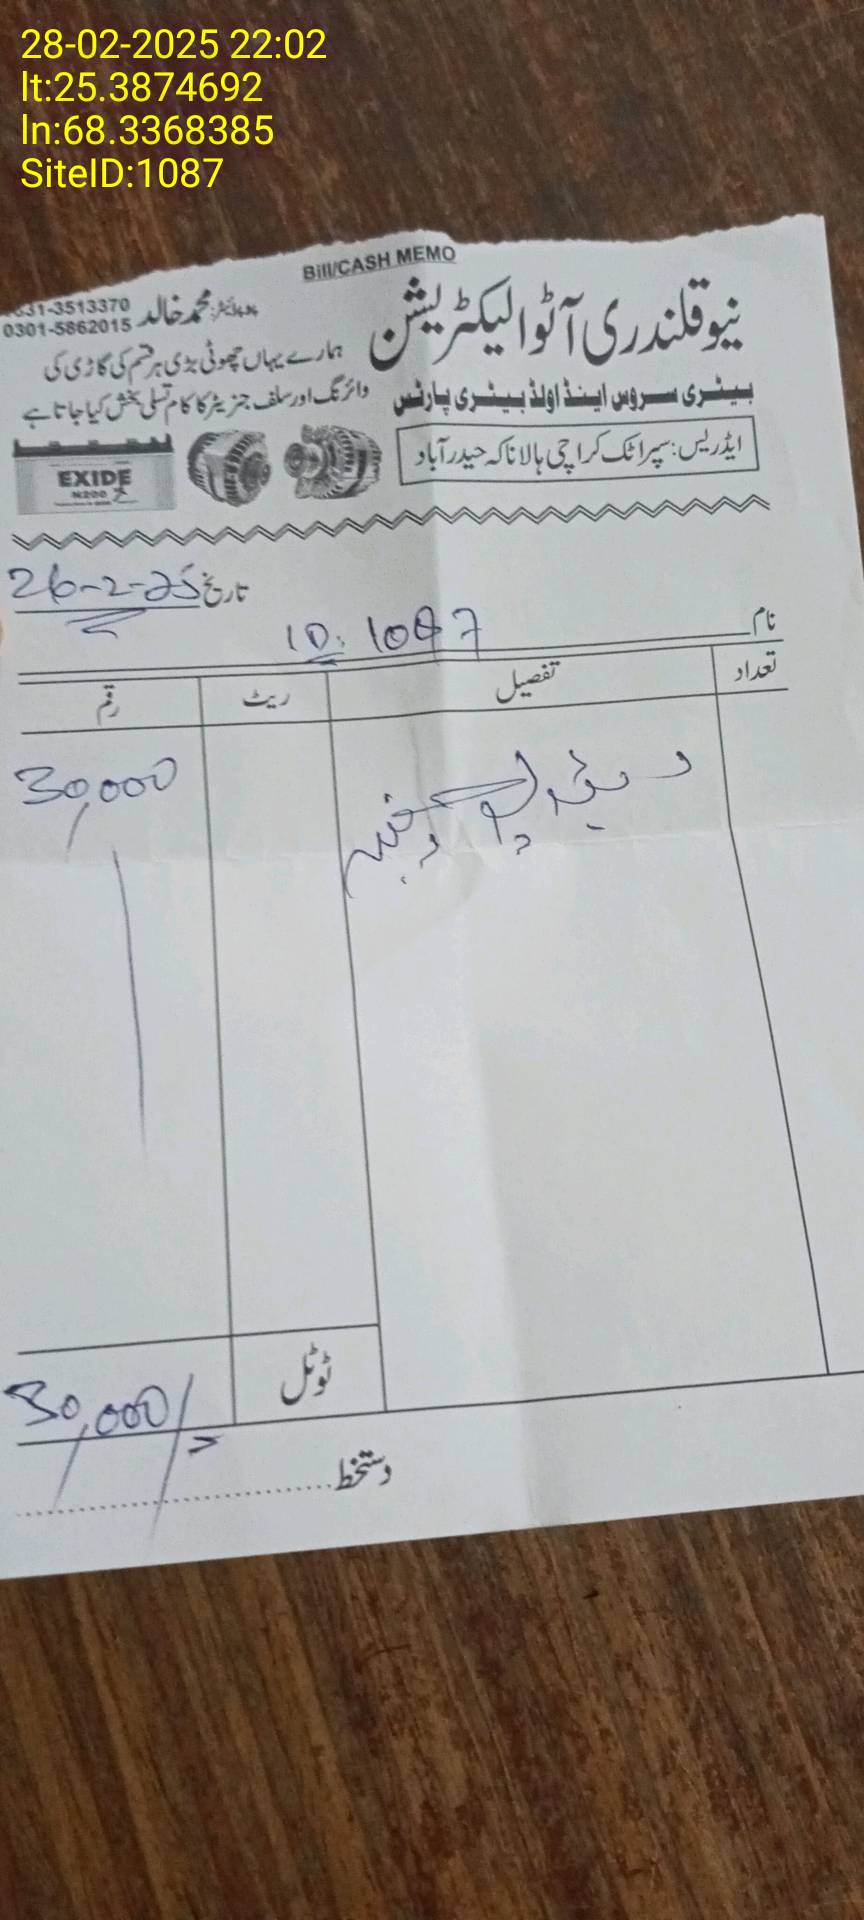 28-02-2025 22:02
lt:25.3874692
ln:68.3368385
SiteID:1087
Bill/CASH MEMO
نیو قلندری آٹو الیکٹریشن
پروپرائیٹر: محمد خالد
31-3513370
0301-5862015
ہمارے یہاں چھوٹی بڑی ہر قسم کی گاڑی کی
وائرنگ اور سلف جنریٹر کا کام تسلی بخش کیا جاتا ہے
بیٹری سروس اینڈ اولڈ بیٹری پارٹس
ایڈریس: سپر اٹک کراچی ہالا ناکہ حیدرآباد
EXIDE
N200
تاریخ 26-2-25
نام ID: 1087
تعداد تفصیل ریٹ رقم
30,000
ٹوٹل 30,000/
دستخط